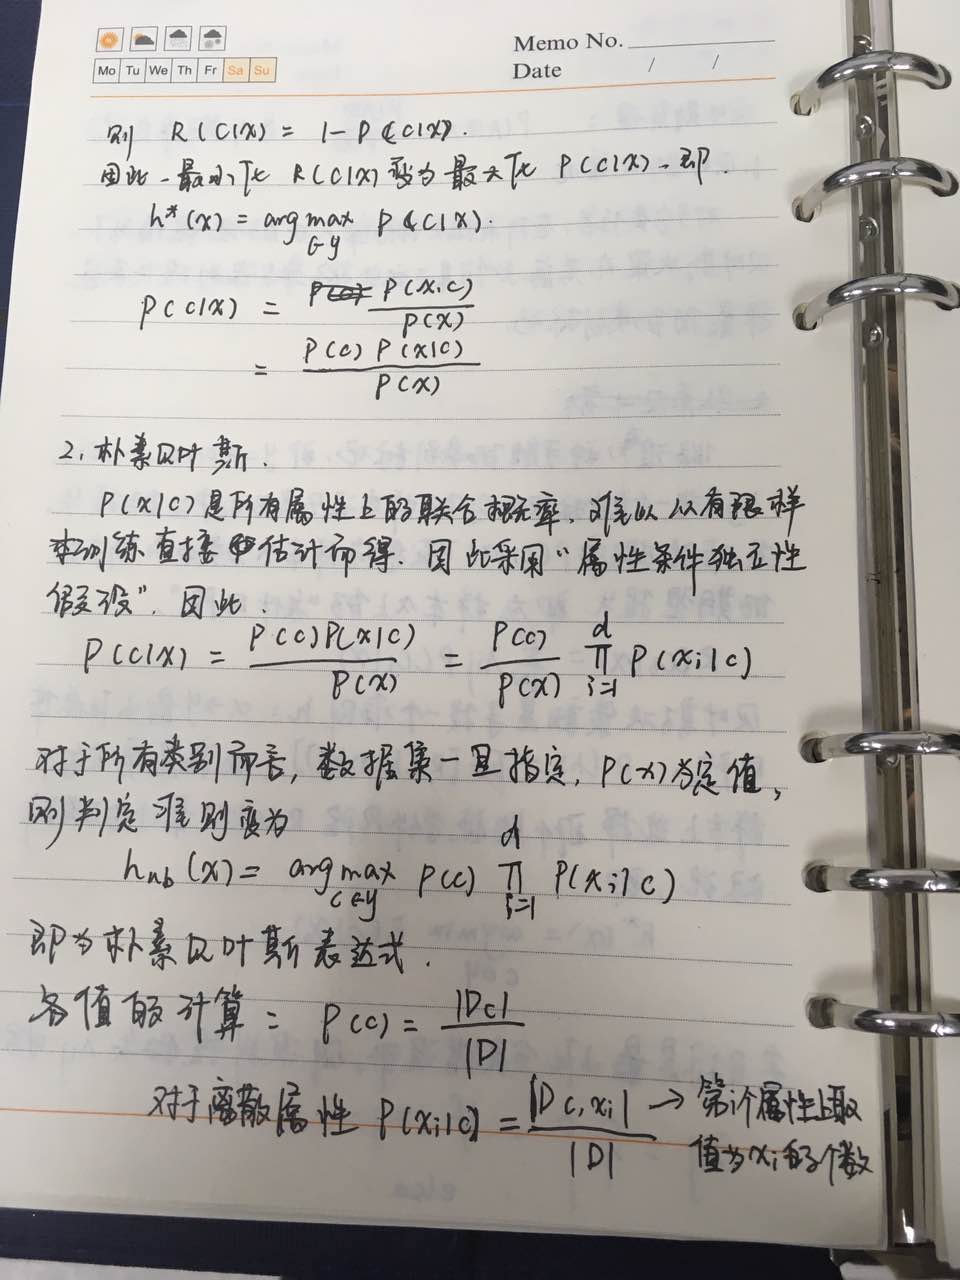 Memo No.
Date / /
Mo Tu We Th Fr Sa Su
则 R(c|x) = 1 - P(c|x).
因此，最小化 R(c|x) 变为最大化 P(c|x)，即
h*(x) = arg max P(c|x).
∈y
P(c|x) = P(x,c)
P(x)
= P(c) P(x|c)
P(x)
2. 朴素贝叶斯.
P(x|c) 是所有属性上的联合概率，难以从有限样
本训练直接估计而得. 因此采用“属性条件独立性
假设”. 因此.
P(c|x) = P(c)P(x|c) / P(x) = P(c) / P(x) ∏ᵢ₌₁ᵈ P(xᵢ|c)
对于所有类别而言，数据集一旦指定，P(x)为定值，
则判定准则变为
h_nb(x) = arg max_{c∈y} P(c) ∏ᵢ₌₁ᵈ P(xᵢ|c)
即为朴素贝叶斯表达式.
各值的计算： P(c) = |Dc| / |D|
对于离散属性 P(xᵢ|c) = |Dc,xᵢ| / |D| → 第i个属性上取
值为xᵢ的个数